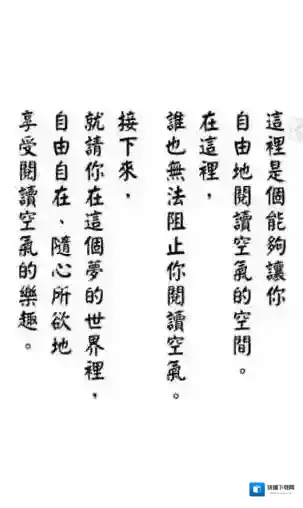 這裡是個能夠讓你
自由地閱讀空氣的空間。
在這裡，
誰也無法阻止你閱讀空氣。
接下來，
就請你在這個夢的世界裡，
自由自在、隨心所欲地
享受閱讀空氣的樂趣。
快捷下載網